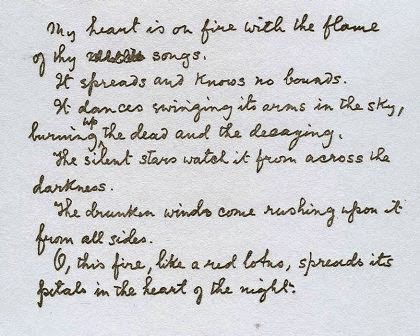 My heart is on fire with the flame
of thy songs.
It spreads and knows no bounds.
It dances swinging its arms in the sky,
burning up the dead and the decaying.
The silent stars watch it from across the
darkness.
The drunken winds come rushing upon it
from all sides.
O, this fire, like a red lotus, spreads its
petals in the heart of the night.